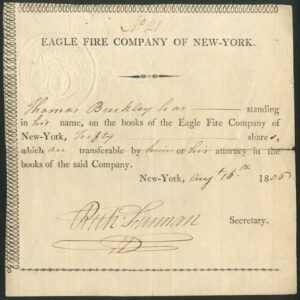 No. 21
EAGLE FIRE COMPANY OF NEW-YORK.
Thomas Buckley has standing
in his name, on the books of the Eagle Fire Company of
New-York, Fifty shares,
which are transferable by him or his attorney in the
books of the said Company.
New-York, Augt 16th 1806
Secretary.